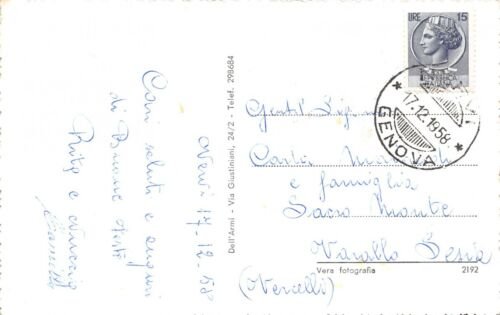 Nervi 17-12-58
Cari saluti e auguri
di Buone Feste
Rita e
Dell'Armi - Via Giustiniani, 24/2 - Telef. 298684
LIRE 15
17.12.1958
GENOVA
Gentil
Carla
e famiglia
Sacro Monte
Varallo Sesia
(Vercelli)
Vera fotografia 2192